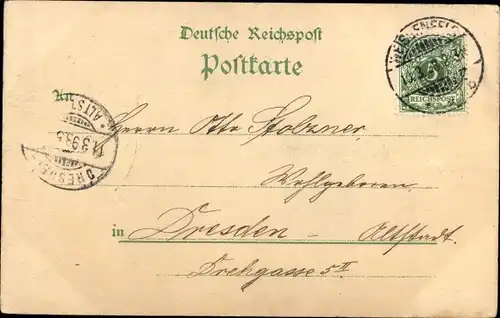 Deutsche Reichspost
Postkarte
WEISSENFELS
5
REICHSPOST
An
DRESDEN
ALTST.
Herrn Otto Stolzner,
Wohlgeboren
in Dresden - Altstadt.
Drehgasse 5 II